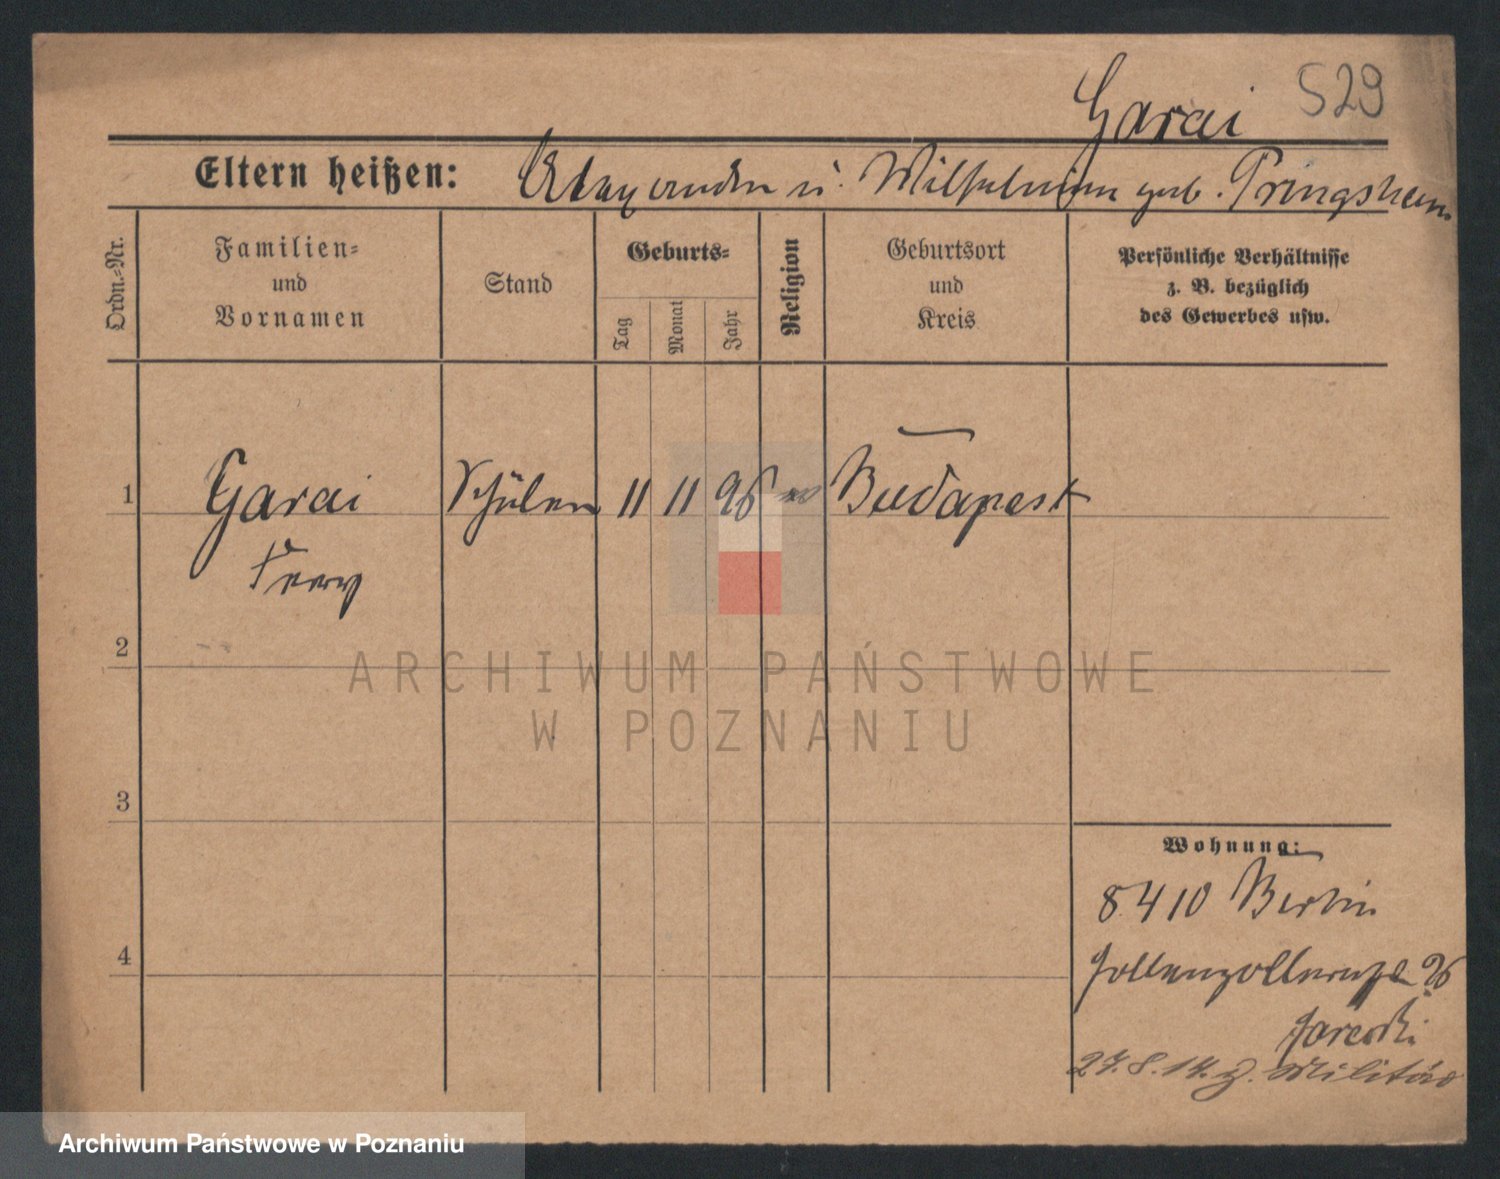 Garai 529
Eltern heißen: Alexander u. Wilhelmine geb. Pringsheim
Ordn.-Nr.
Familien-
und
Vornamen
Stand
Geburts-
Tag
Monat
Jahr
Religion
Geburtsort
und
Kreis
Persönliche Verhältnisse
z. B. bezüglich
des Gewerbes usw.
1 Garai Schüler 11 11 96 Budapest
2
3
4
Wohnung:
8.4.10 Berlin
Hohenzollernstr. 26
27.8.14. z. Militär
ARCHIWUM PAŃSTWOWE
W POZNANIU
Archiwum Państwowe w Poznaniu